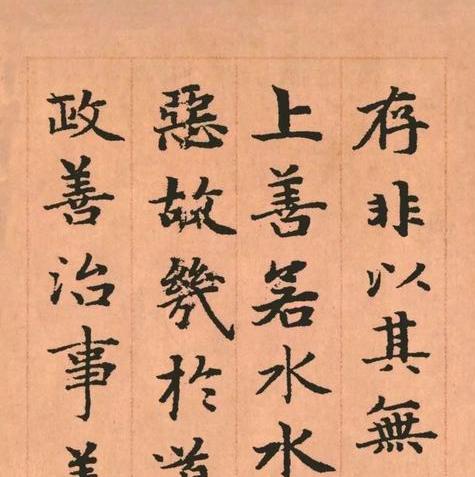 存非以其無
上善若水水
惡故幾於道
政善治事善